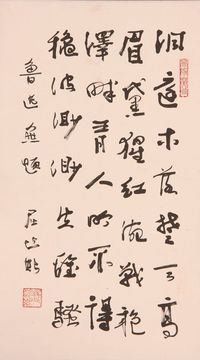 洞庭木落楚天高
眉黛猩紅涴戰袍
澤畔有人吟不得
穐波渺渺失離騷
魯迅無題